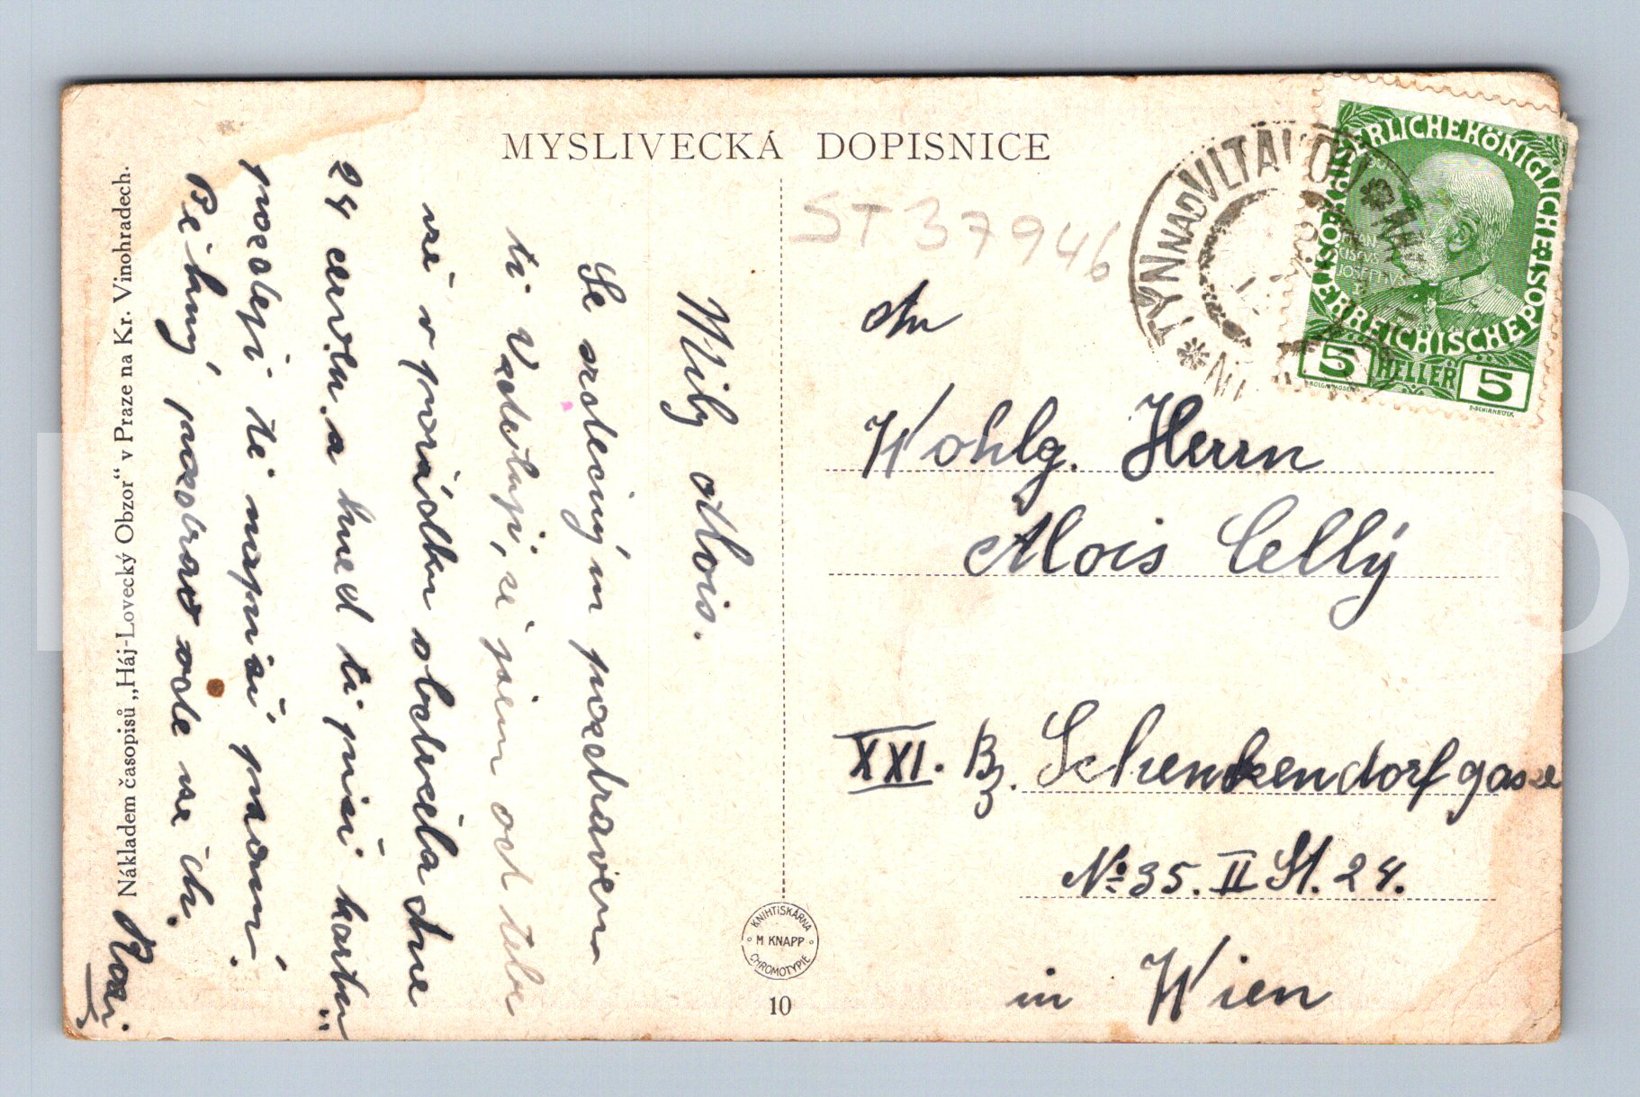 MYSLIVECKÁ DOPISNICE
ST 37946
TÝN NAD VLTAVOU
KAISERLICHE KÖNIGLICHE ÖSTERREICHISCHE POST
5 HELLER 5
An
Wohlg. Herrn
Alois Cellý
XXI. Bz. Schenkendorfgasse
No 35. II St. 24.
in Wien
Milý Alois.
Se srdečným pozdravem
ti sděluji, že jsem od tebe
vše v pořádku obdržela dne
24 a hned ti píši kartu
později ti napíši psaní.
Pěkný pozdrav ode všech.
Rosi
Nákladem časopisů „Háj-Lovecký Obzor“ v Praze na Kr. Vinohradech.
KNIHTISKÁRNA
M KNAPP
CHROMOTYPIE
10